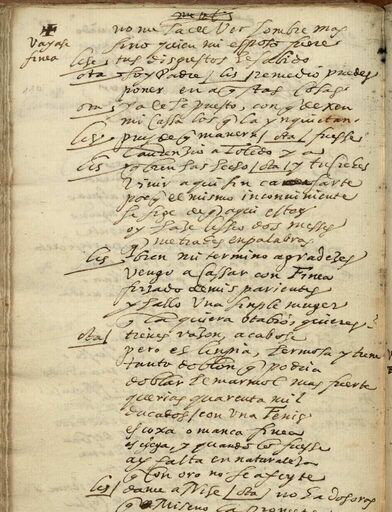 Vayase
finea
no me ha de ver hombre mas
sino quien mi esposo fuere
lis/ tus disgustos he sabido
ota/ soy Padre / lis remedio puedes
poner en aquestas cosas
ota/ ya le he puesto, con que dexen
mi casa los que la ynquietan
lis/ pues de que manera / ota/ fuesse
laurenzio a Toledo ya
lis/ que bien has hecho / ota/ y tu crees
vivir aqui sin casarte
porque el mismo inconviniente
se sige de que aqui estes
oy haze liseo dos messes
que me traes en palabras
lis/ bien mi termino agradezes
vengo a cassar con Finea
forzado de mis parientes
y hallo una simple muger
que la quiera otabio, quieres?
ota/ tienes razon, acabose
pero es limpia, hermosa y tiene
tanto doblon que podria
doblar el marmol mas fuerte
querias quarenta mil
ducados con una Fenis
es coxa o manca finea
es ciega, y quando lo fuesse
ay falta en naturaleza
que con oro no se afeyte
lis/ dame a Nise / ota/ no ha dos oras
que Miseno la promete